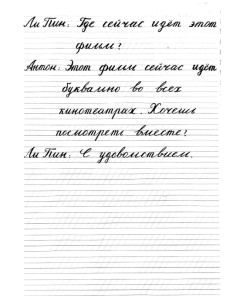 Ли Пин: Где сейчас идёт этот
фильм?
Антон: Этот фильм сейчас идёт
буквально во всех
кинотеатрах. Хочешь
посмотреть вместе?
Ли Пин: С удовольствием.